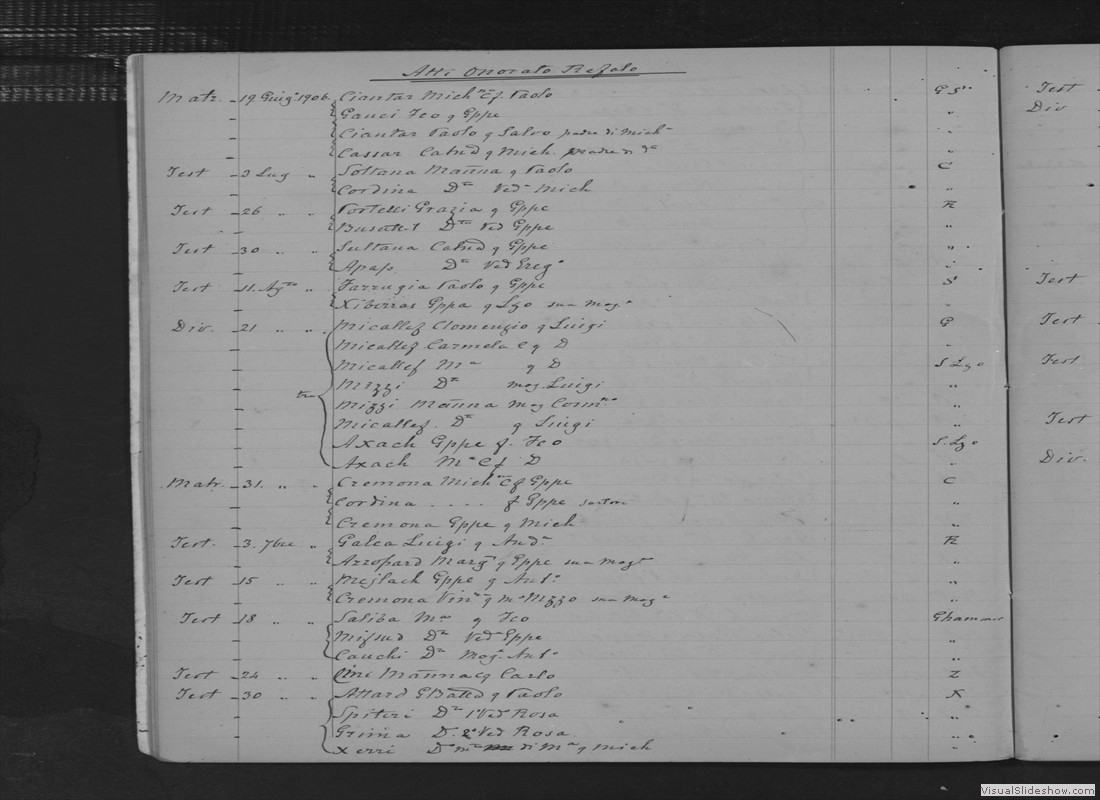 Atti Onorato Refalo
Matr. 19 Giug° 1906 Ciantar Mich^ne C f. Paolo G S^n
" Gauci Fco q Gppe "
Ciantar Paolo q Salvo padre di Mich^e "
Cassar Catnd q Mich. madre di d^a "
Test 2 Lug " Sultana Mañna q Paolo C
Cordina D^a Ved^a Mich "
Test 26 " " Portelli Grazia q Gppe R
Busuttil D^ta Ved Gppe "
Test 30 " " Sultana Catnd q Gppe "
Apap. D^a Ved Greg° "
Test 11. Ag^to " Farrugia Paolo q Gppe S
Xiberras Gppa q Lzo sua mog^e "
Div. 21 " " Micallef Clomenzio q Luigi G
Micallef Carmela C q D "
Micallef M^a q D S. Lzo
Mizzi D^a mog. Luigi "
tra Mizzi Mañna mog Carm^no "
Micallef. D^a q Luigi "
Axach Gppe f. Fco S. Lzo
Axach M^a C f D "
Matr. 31. " " Cremona Mich^ne C f Gppe C
Cordina . . . . f Gppe sartore "
Cremona Gppe q Mich "
Test. 3. 7bre " Galea Luigi q And^a R
Azzopard Marg^a q Gppe sua mog^e "
Test 15 " " Mejlach Gppe q Ant° "
Cremona Vin^a q sua mog^e "
Test 18 " " Saliba M^a q Fco Ghammar
Mifsud D^a Ved^a Gppe "
Cauchi D^a Mog^e Ant° "
Test 24 " " Mañna C q Carlo Z
Test 30 " " Attard GBatta q Paolo X
Spiteri D^a 1° Ved^a Rosa "
Grima D. 2° Ved Rosa. "
Xerri D^a di M^a q Mich "
Test
Div
Test
Test
Test
Test
Div.
VisualSlideshow.com